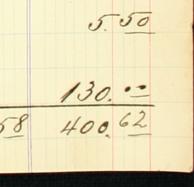 5. 50
130. ••
58 400. 62